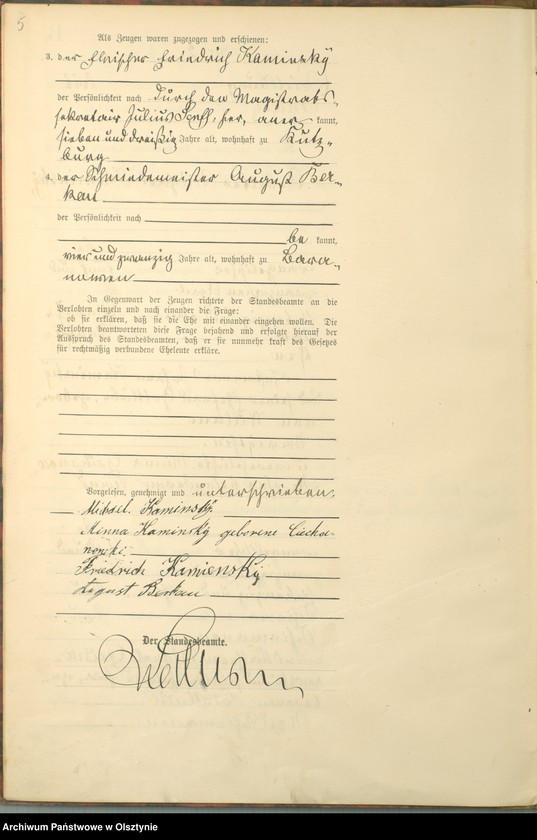 5
Als Zeugen waren zugezogen und erschienen:
3. der Fleischer Friedrich Kaminsky
der Persönlichkeit nach durch den Magistrats-
sekretair Julius hier, aner kannt,
sieben und dreißig Jahre alt, wohnhaft zu Kutz-
burg
4. der Schmiedemeister August Ber-
kau
der Persönlichkeit nach
be kannt,
vier und zwanzig Jahre alt, wohnhaft zu Bara-
nowen
In Gegenwart der Zeugen richtete der Standesbeamte an die
Verlobten einzeln und nach einander die Frage:
ob sie erklären, daß sie die Ehe mit einander eingehen wollen. Die
Verlobten beantworteten diese Frage bejahend und erfolgte hierauf der
Ausspruch des Standesbeamten, daß er sie nunmehr kraft des Gesetzes
für rechtmäßig verbundene Eheleute erkläre.
Vorgelesen, genehmigt und unterschrieben:
Kaminsky
Minna Kaminsky geborene Ciecha-
nowski
Friedrich Kamiensky
August Berkau
Der Standesbeamte.
Archiwum Państwowe w Olsztynie